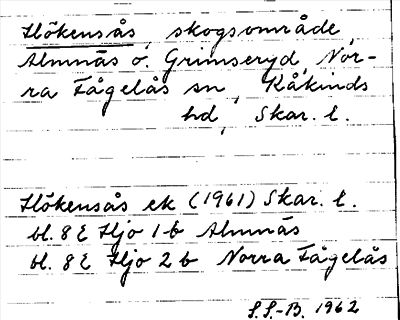 Hökensås, skogsområde,
Almnäs o. Grimseryd, Nor-
ra Fågelås sn, Kåkinds
hd, Skar. l.
Hökensås ek (1961) Skar. l.
bl. 8 E Hjo 1 b Almnäs
bl. 8 E Hjo 2 b Norra Fågelås
S.S.-B. 1962